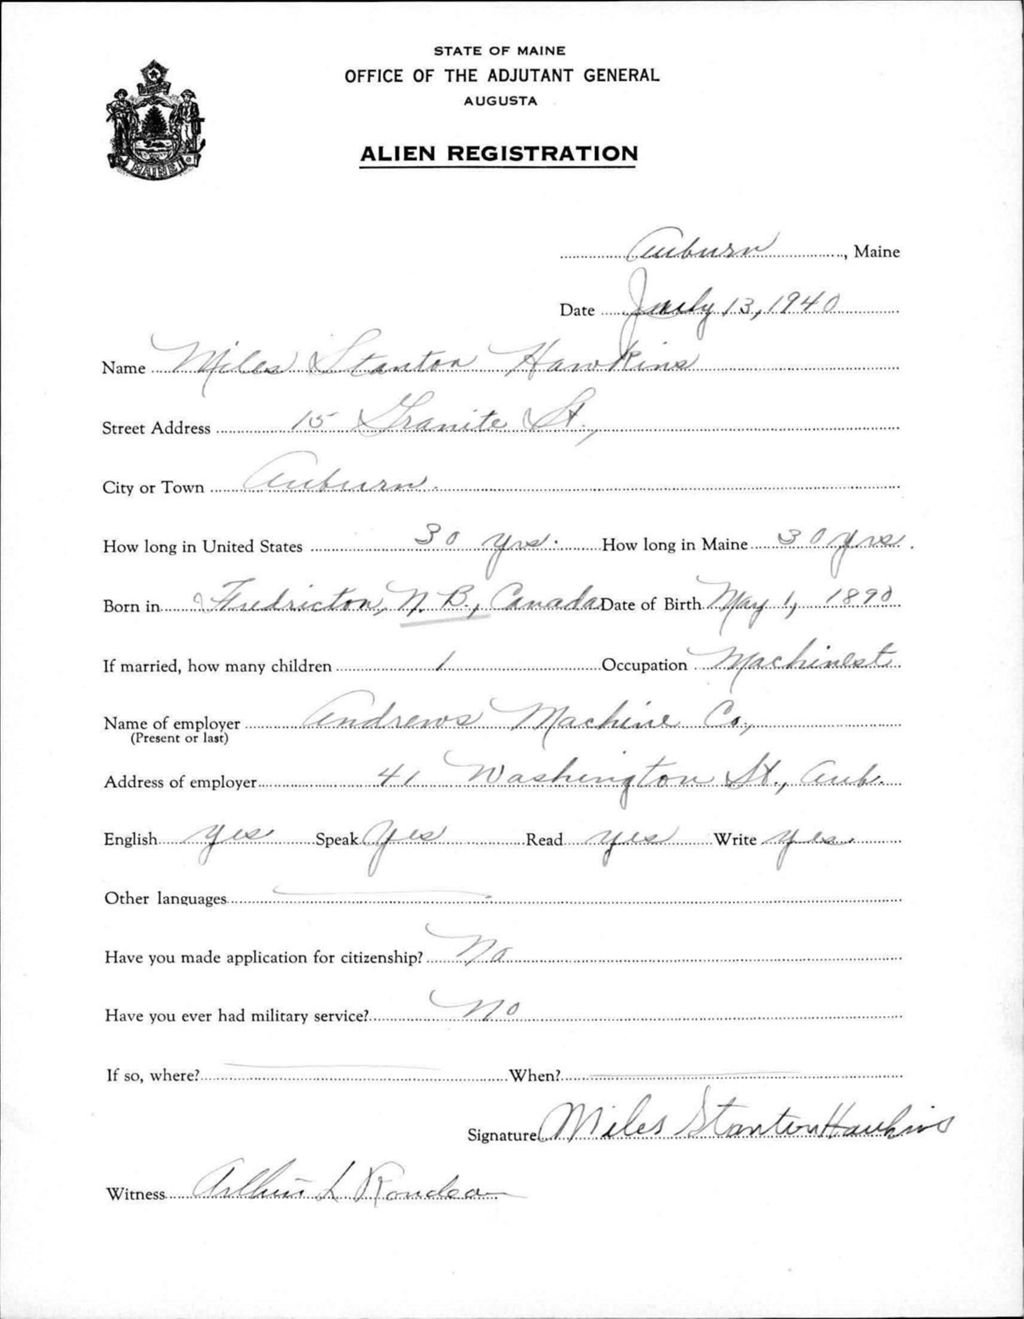 STATE OF MAINE
OFFICE OF THE ADJUTANT GENERAL
AUGUSTA
ALIEN REGISTRATION
MAINE
Auburn, Maine
Date July 13, 1940
Name Miles Stanton Hawkins
Street Address 15 Granite St.,
City or Town Auburn.
How long in United States 30 yrs. How long in Maine 30 yrs.
Born in Fredricton, N. B., Canada Date of Birth May 1, 1890
If married, how many children 1 Occupation Machinest
Name of employer Andrews Machine Co.,
(Present or last)
Address of employer 41 Washington St., Aub.
English yes Speak Yes Read yes Write yes.
Other languages
Have you made application for citizenship? No
Have you ever had military service? No
If so, where? When?
Signature Miles Stanton Hawkins
Witness L Rondea